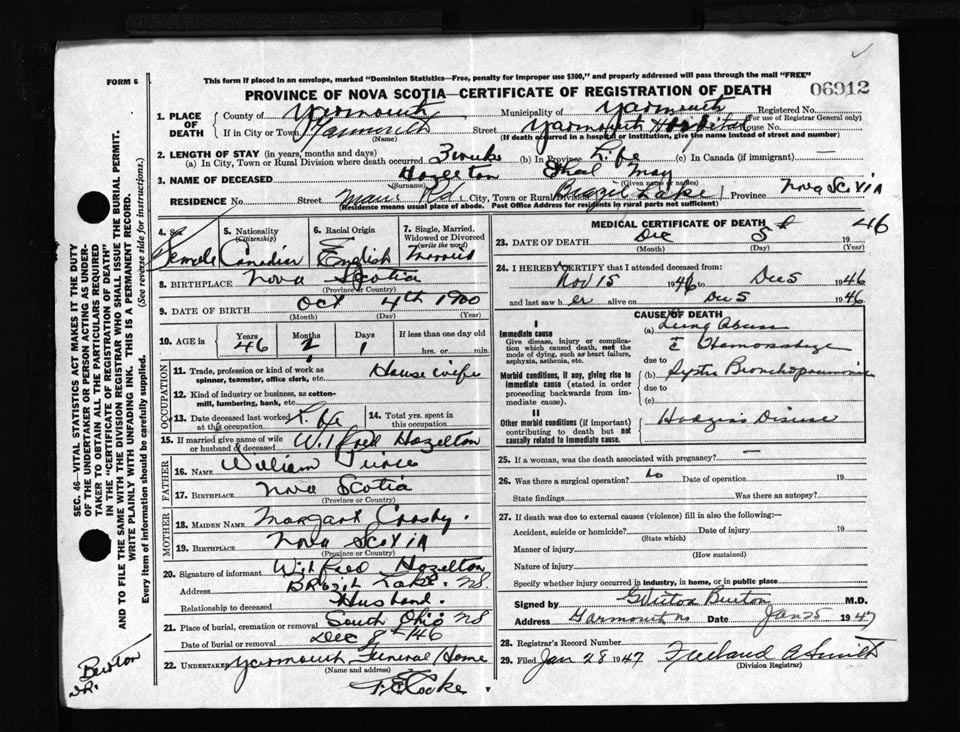 FORM 6
This form if placed in an envelope, marked "Dominion Statistics—Free, penalty for improper use $300," and properly addressed will pass through the mail "FREE"
06912
PROVINCE OF NOVA SCOTIA—CERTIFICATE OF REGISTRATION OF DEATH
1. PLACE OF DEATH
County of Yarmouth Municipality of Yarmouth Registered No.
(For use of Registrar General only)
If in City or Town Yarmouth Street Yarmouth Hospital House No.
(Name) (If death occurred in a hospital or institution, give the name instead of street and number)
2. LENGTH OF STAY (in years, months and days)
(a) In City, Town or Rural Division where death occurred 3 weeks (b) In Province Life (c) In Canada (if immigrant) —
3. NAME OF DECEASED Hazelton Ethel May
(Surname) (Given name or names)
RESIDENCE No. Street Main Rd City, Town or Rural Division Brazil Lake Province Nova Scotia
(Residence means usual place of abode. Post Office Address for residents in rural parts not sufficient)
4. Sex Female
5. Nationality (Citizenship) Canadian
6. Racial Origin English
7. Single, Married, Widowed or Divorced (write the word) Married
8. BIRTHPLACE Nova Scotia
(Province or Country)
9. DATE OF BIRTH Oct 4th 1900
(Month) (Day) (Year)
10. AGE in Years 46 Months 2 Days 1 If less than one day old
hrs. or min.
OCCUPATION
11. Trade, profession or kind of work as spinner, teamster, office clerk, etc. House wife
12. Kind of industry or business, as cotton-mill, lumbering, bank, etc.
13. Date deceased last worked at this occupation Life
14. Total yrs. spent in this occupation
15. If married give name of wife or husband of deceased Wilfred Hazelton
FATHER
16. NAME William
17. BIRTHPLACE Nova Scotia
(Province or Country)
MOTHER
18. MAIDEN NAME Margart Crosby.
19. BIRTHPLACE Nova Scotia
(Province or Country)
20. Signature of informant Wilfred Hazelton
Address Brazil Lake. NS
Relationship to deceased Husband.
21. Place of burial, cremation or removal South Ohio NS
Date of burial or removal Dec 8th 46
22. UNDERTAKER Yarmouth Funeral Home
(Name and address)
MEDICAL CERTIFICATE OF DEATH
23. DATE OF DEATH Dec 5th 1946
(Month) (Day) (Year)
24. I HEREBY CERTIFY that I attended deceased from:
Nov 15 1946 to Dec 5 1946
and last saw her alive on Dec 5 1946
CAUSE OF DEATH
I
Immediate cause
Give disease, injury or complication which caused death, not the mode of dying, such as heart failure, asphyxia, asthenia, etc.
(a) Lung Abscess
Hemorrhage
due to
Morbid conditions, if any, giving rise to immediate cause (stated in order proceeding backwards from immediate cause).
(b) Septic Bronchopneumonia
due to
(c)
II
Other morbid conditions (if important) contributing to death but not causally related to immediate cause.
Hodgins Disease
25. If a woman, was the death associated with pregnancy? —
26. Was there a surgical operation? No Date of operation 19
State findings Was there an autopsy?
27. If death was due to external causes (violence) fill in also the following:—
Accident, suicide or homicide? Date of injury 19
(State which)
Manner of injury
(How sustained)
Nature of injury
Specify whether injury occurred in industry, in home, or in public place
Signed by Burton M.D.
Address Yarmouth NS Date Jan 25 1947
28. Registrar's Record Number
29. Filed Jan 28 1947
(Division Registrar)
SEC. 46—VITAL STATISTICS ACT MAKES IT THE DUTY
OF THE UNDERTAKER OR PERSON ACTING AS UNDER-
TAKER TO OBTAIN ALL THE PARTICULARS REQUIRED
IN THE "CERTIFICATE OF REGISTRATION OF DEATH"
AND TO FILE THE SAME WITH THE DIVISION REGISTRAR WHO SHALL ISSUE THE BURIAL PERMIT.
WRITE PLAINLY WITH UNFADING INK. THIS IS A PERMANENT RECORD.
Every item of information should be carefully supplied. (See reverse side for instructions.)
Burton